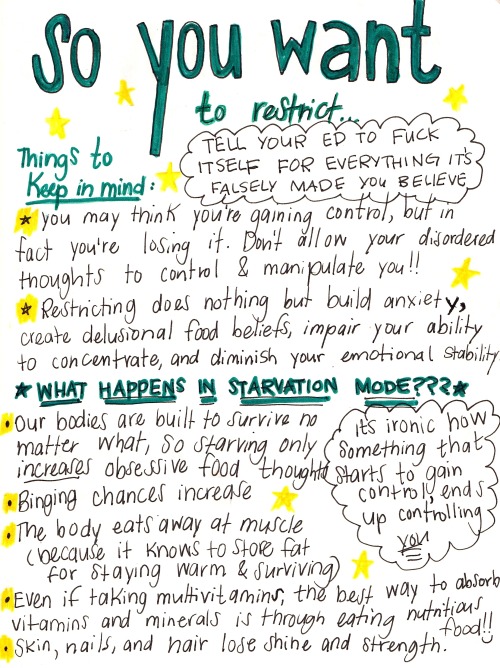 So you want
to restrict...
Things to
Keep in mind:
TELL YOUR ED TO FUCK
ITSELF FOR EVERYTHING IT'S
FALSELY MADE YOU BELIEVE
you may think you're gaining control, but in
fact you're losing it. Don't allow your disordered
thoughts to control & manipulate you!!
Restricting does nothing but build anxiety,
create delusional food beliefs, impair your ability
to concentrate, and diminish your emotional stability
WHAT HAPPENS IN STARVATION MODE???
Our bodies are built to survive no
matter what, so starving only
increases obsessive food thoughts
Binging chances increase
The body eats away at muscle
(because it knows to store fat
for staying warm & surviving)
it's ironic how
something that
starts to gain
control, ends
up controlling
you
Even if taking multivitamins, the best way to absorb
vitamins and minerals is through eating nutritious
food!!
Skin, nails, and hair lose shine and strength.